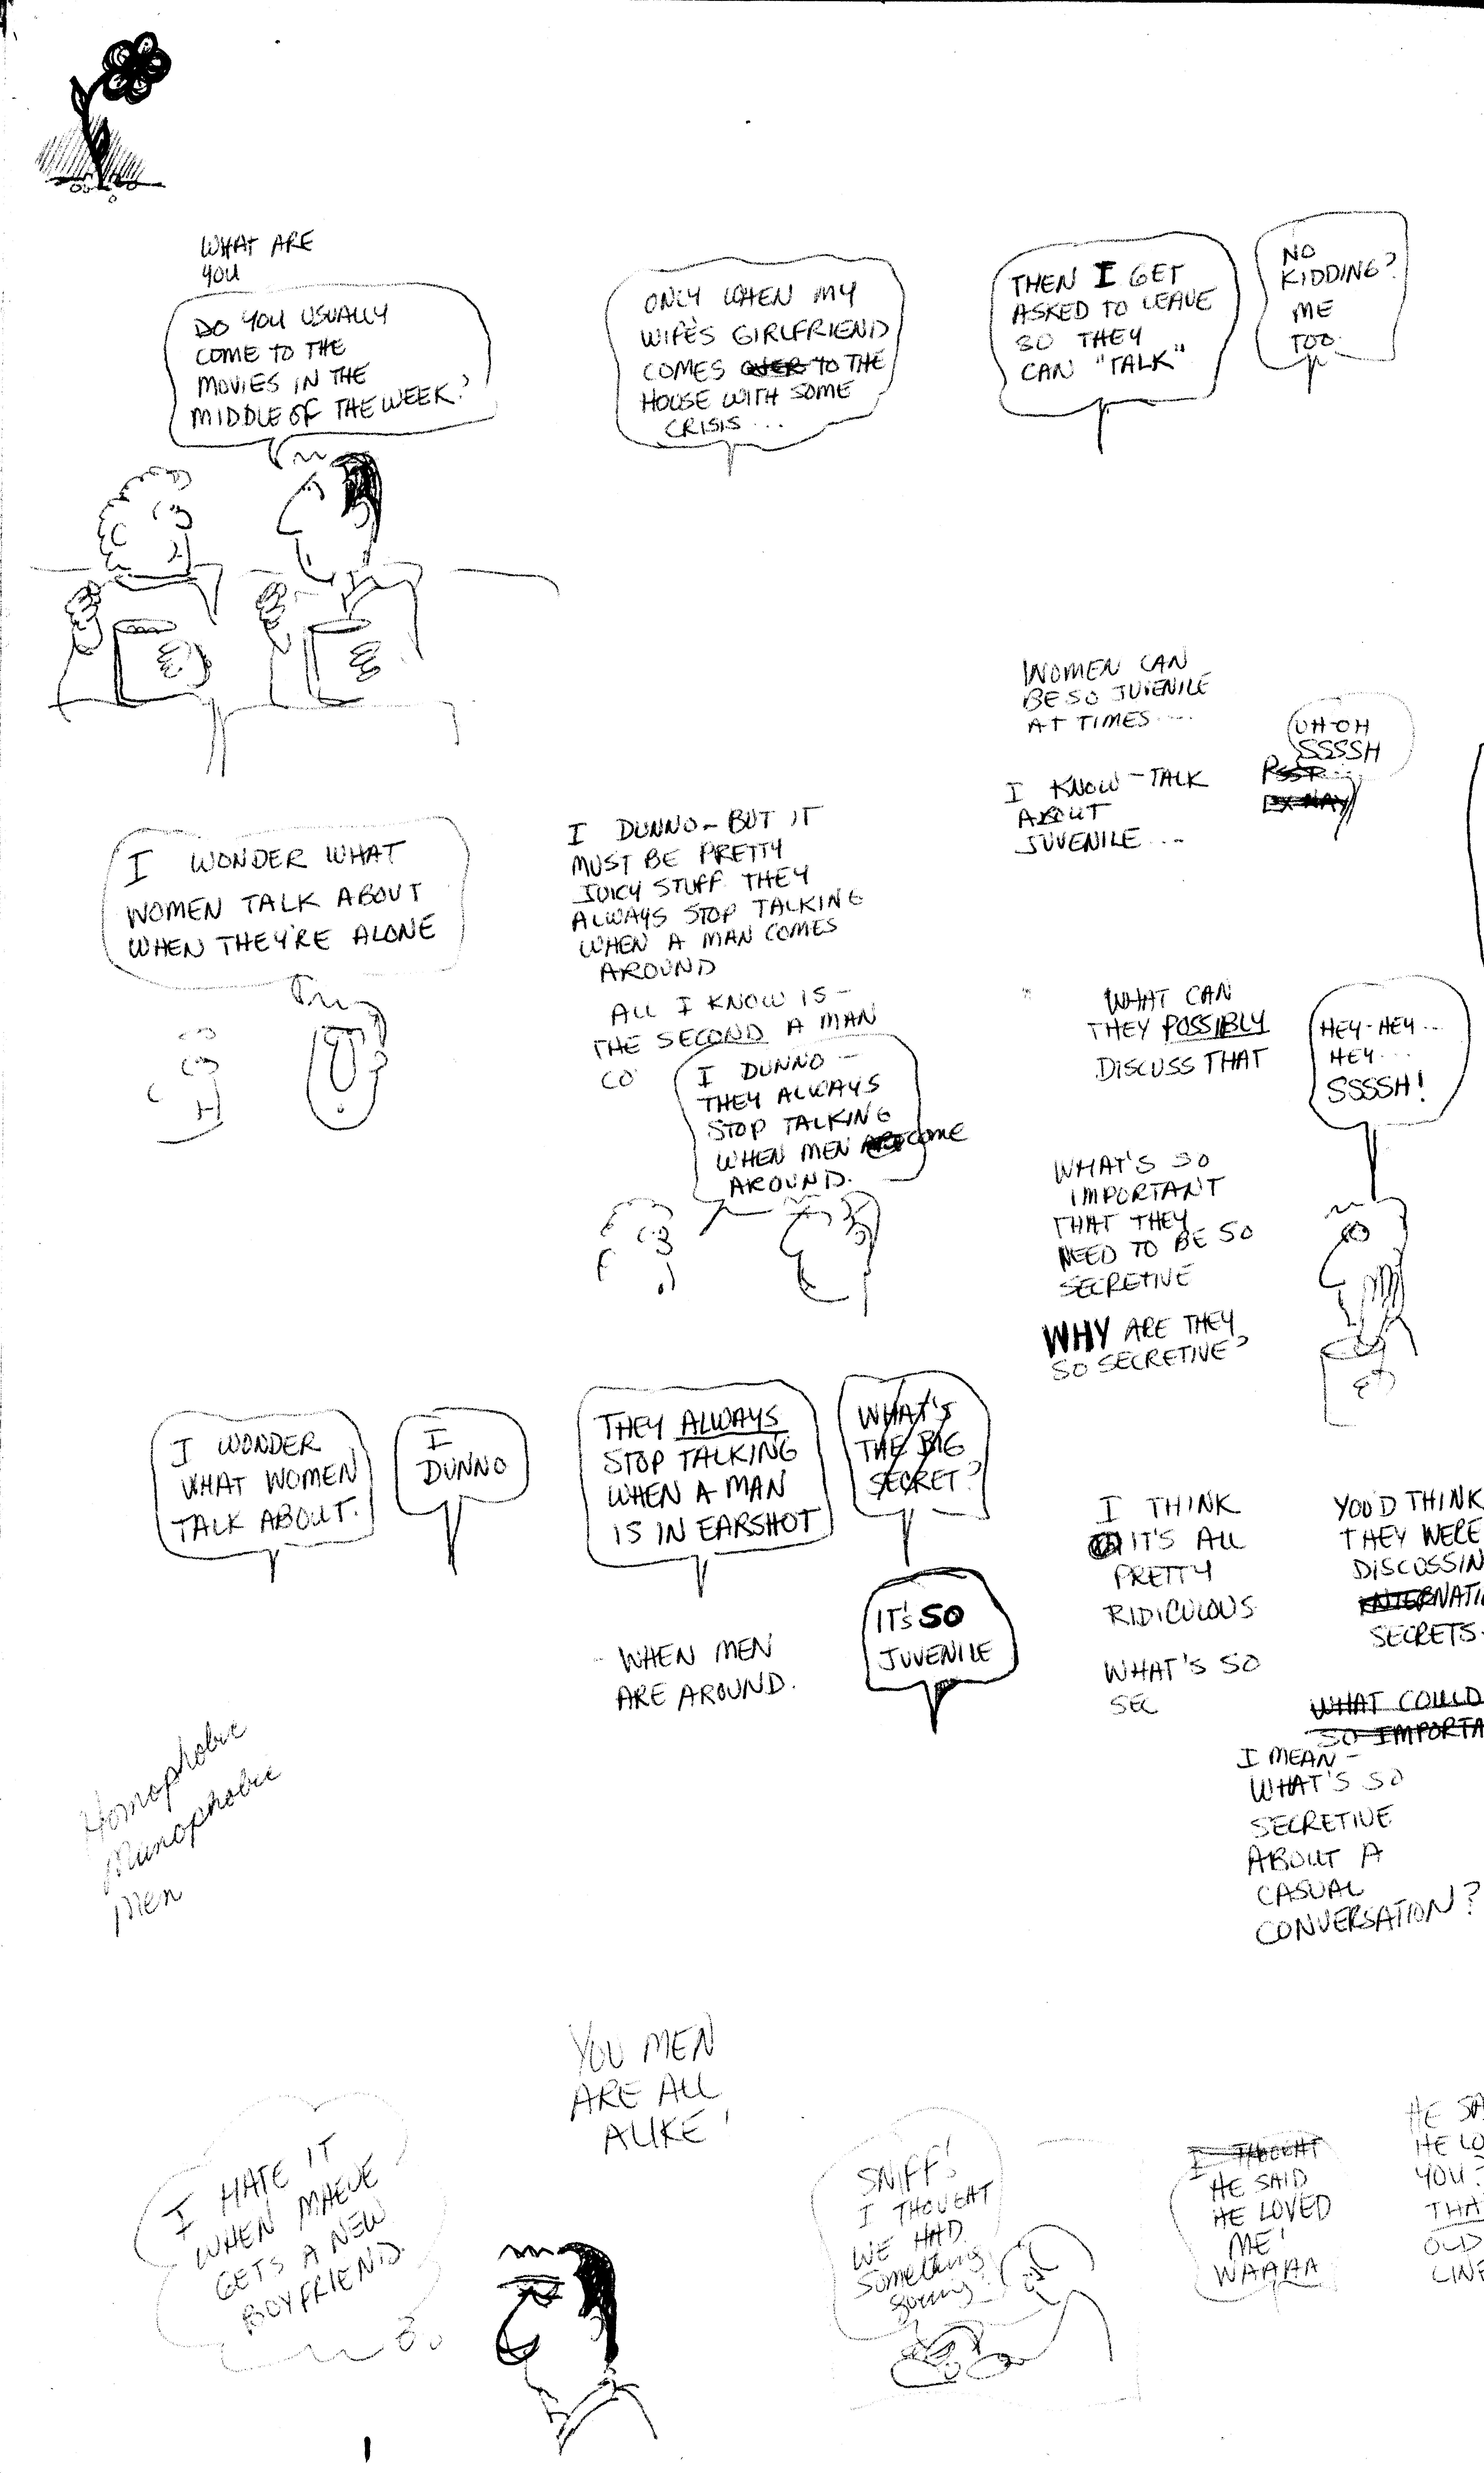 WHAT ARE
YOU
DO YOU USUALLY
COME TO THE
MOVIES IN THE
MIDDLE OF THE WEEK?
ONLY WHEN MY
WIFE'S GIRLFRIEND
COMES OVER TO THE
HOUSE WITH SOME
CRISIS...
THEN I GET
ASKED TO LEAVE
SO THEY
CAN "TALK"
NO
KIDDING?
ME
TOO.
WOMEN CAN
BE SO JUVENILE
AT TIMES....
UH-OH
SSSSH
I KNOW - TALK
ABOUT
JUVENILE...
I WONDER WHAT
WOMEN TALK ABOUT
WHEN THEY'RE ALONE
I DUNNO - BUT IT
MUST BE PRETTY
JUICY STUFF THEY
ALWAYS STOP TALKING
WHEN A MAN COMES
AROUND
ALL I KNOW IS -
THE SECOND A MAN
CO
I DUNNO -
THEY ALWAYS
STOP TALKING
WHEN MEN COME
AROUND.
WHAT CAN
THEY POSSIBLY
DISCUSS THAT
HEY-HEY...
HEY...
SSSSH!
WHAT'S SO
IMPORTANT
THAT THEY
NEED TO BE SO
SECRETIVE
WHY ARE THEY
SO SECRETIVE?
I WONDER
WHAT WOMEN
TALK ABOUT.
I
DUNNO
THEY ALWAYS
STOP TALKING
WHEN A MAN
IS IN EARSHOT
WHAT'S
THE BIG
SECRET?
IT'S SO
JUVENILE
- WHEN MEN
ARE AROUND.
I THINK
IT'S ALL
PRETTY
RIDICULOUS.
WHAT'S SO
SEC
YOU'D THINK
THEY WERE
DISCUSSIN
INTERNATI
SECRETS.
WHAT COULD
SO IMPORTA
I MEAN -
WHAT'S SO
SECRETIVE
ABOUT A
CASUAL
CONVERSATION?
Homophobic
Munophobic
Men
I HATE IT
WHEN MAEVE
GETS A NEW
BOYFRIEND.
YOU MEN
ARE ALL
ALIKE!
SNIFF!
I THOUGHT
WE HAD
something
going!
I THOUGHT
HE SAID
HE LOVED
ME!
WAAAA
HE SA
HE LO
YOU?
THA
OLD
LINE